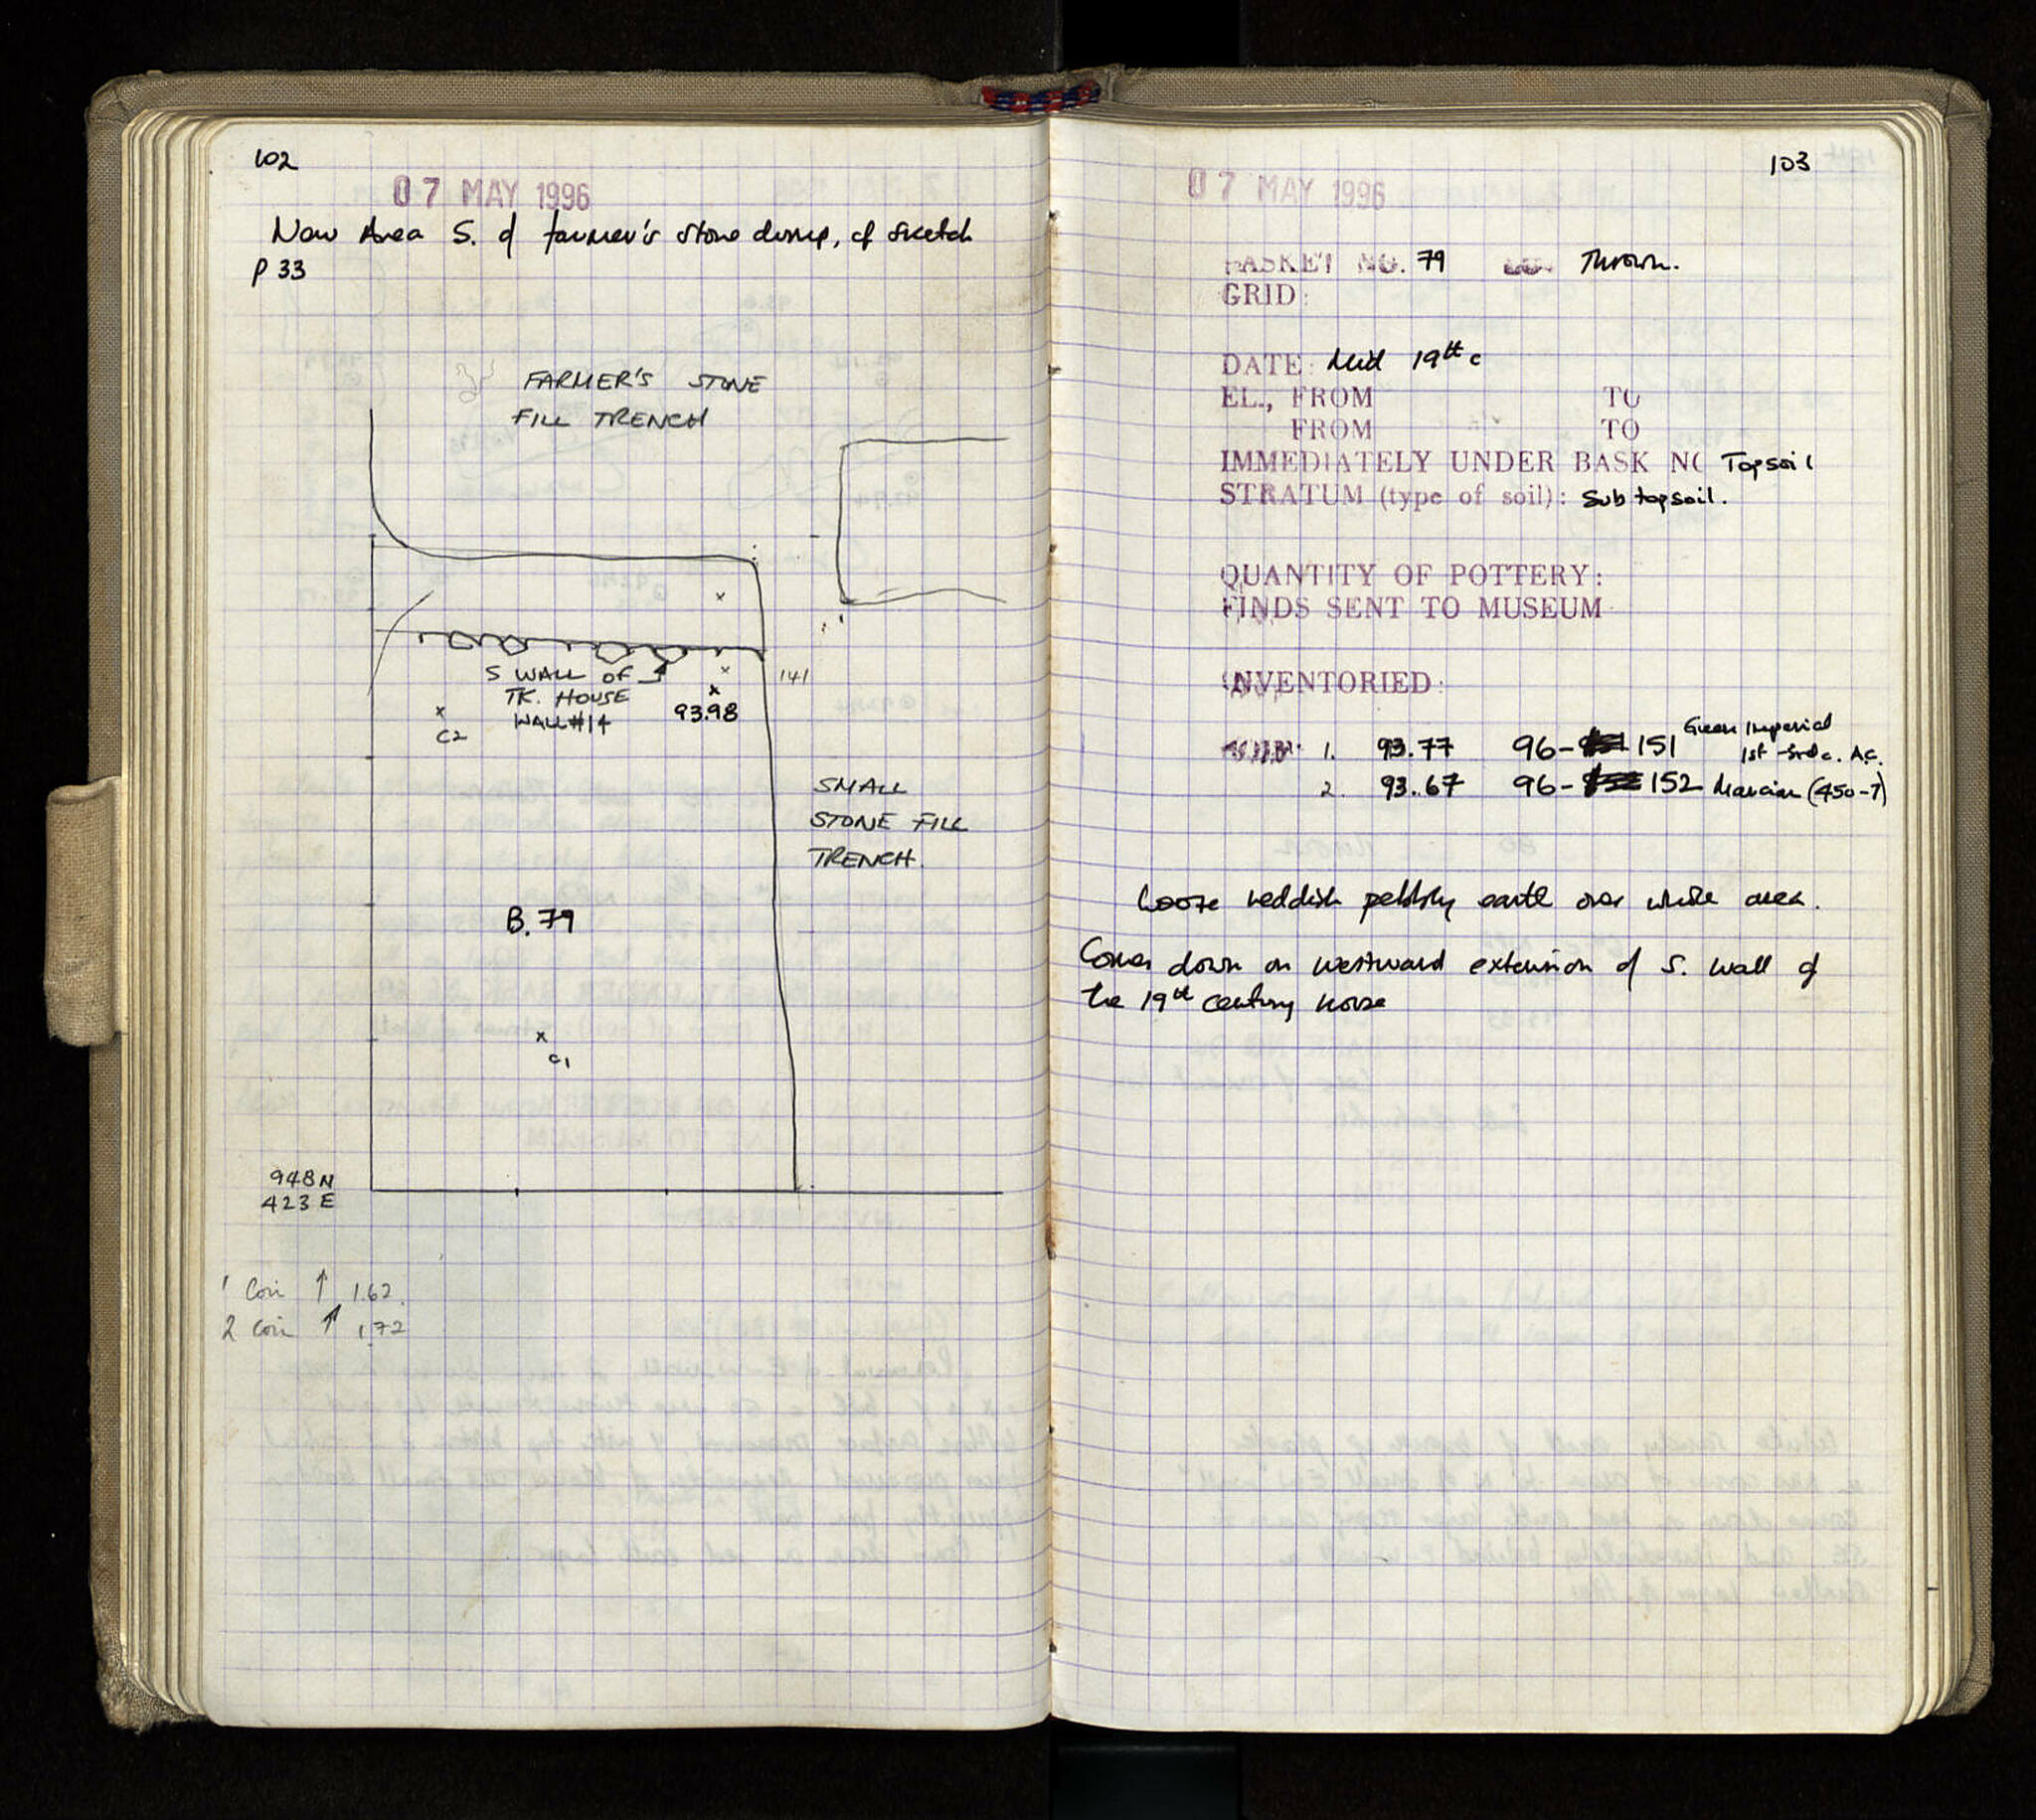 102
07 MAY 1996
New Area S. of farmer's stone dump, cf sketch
p 33
FARMER'S STONE
FILL TRENCH
S WALL OF
TK. HOUSE
WALL #14
93.98
141
C2
SMALL
STONE FILL
TRENCH.
B.79
C1
948 N
423 E
1 Coin ↑ 1.62.
2 Coin ↑ 1.72
103
07 MAY 1996
BASKET NO. 79 Thrown.
GRID:
DATE: Mid 19th c
EL., FROM TO
FROM TO
IMMEDIATELY UNDER BASK NO Topsoil
STRATUM (type of soil): Sub topsoil.
QUANTITY OF POTTERY:
FINDS SENT TO MUSEUM
INVENTORIED:
1. 93.77 96- 151 Greek Imperial
1st-3rd c. A.C.
2. 93.67 96- 152 Marcian (450-7)
Loose reddish pebbly earth over whole area.
Comes down on westward extension of S. wall of
the 19th century house